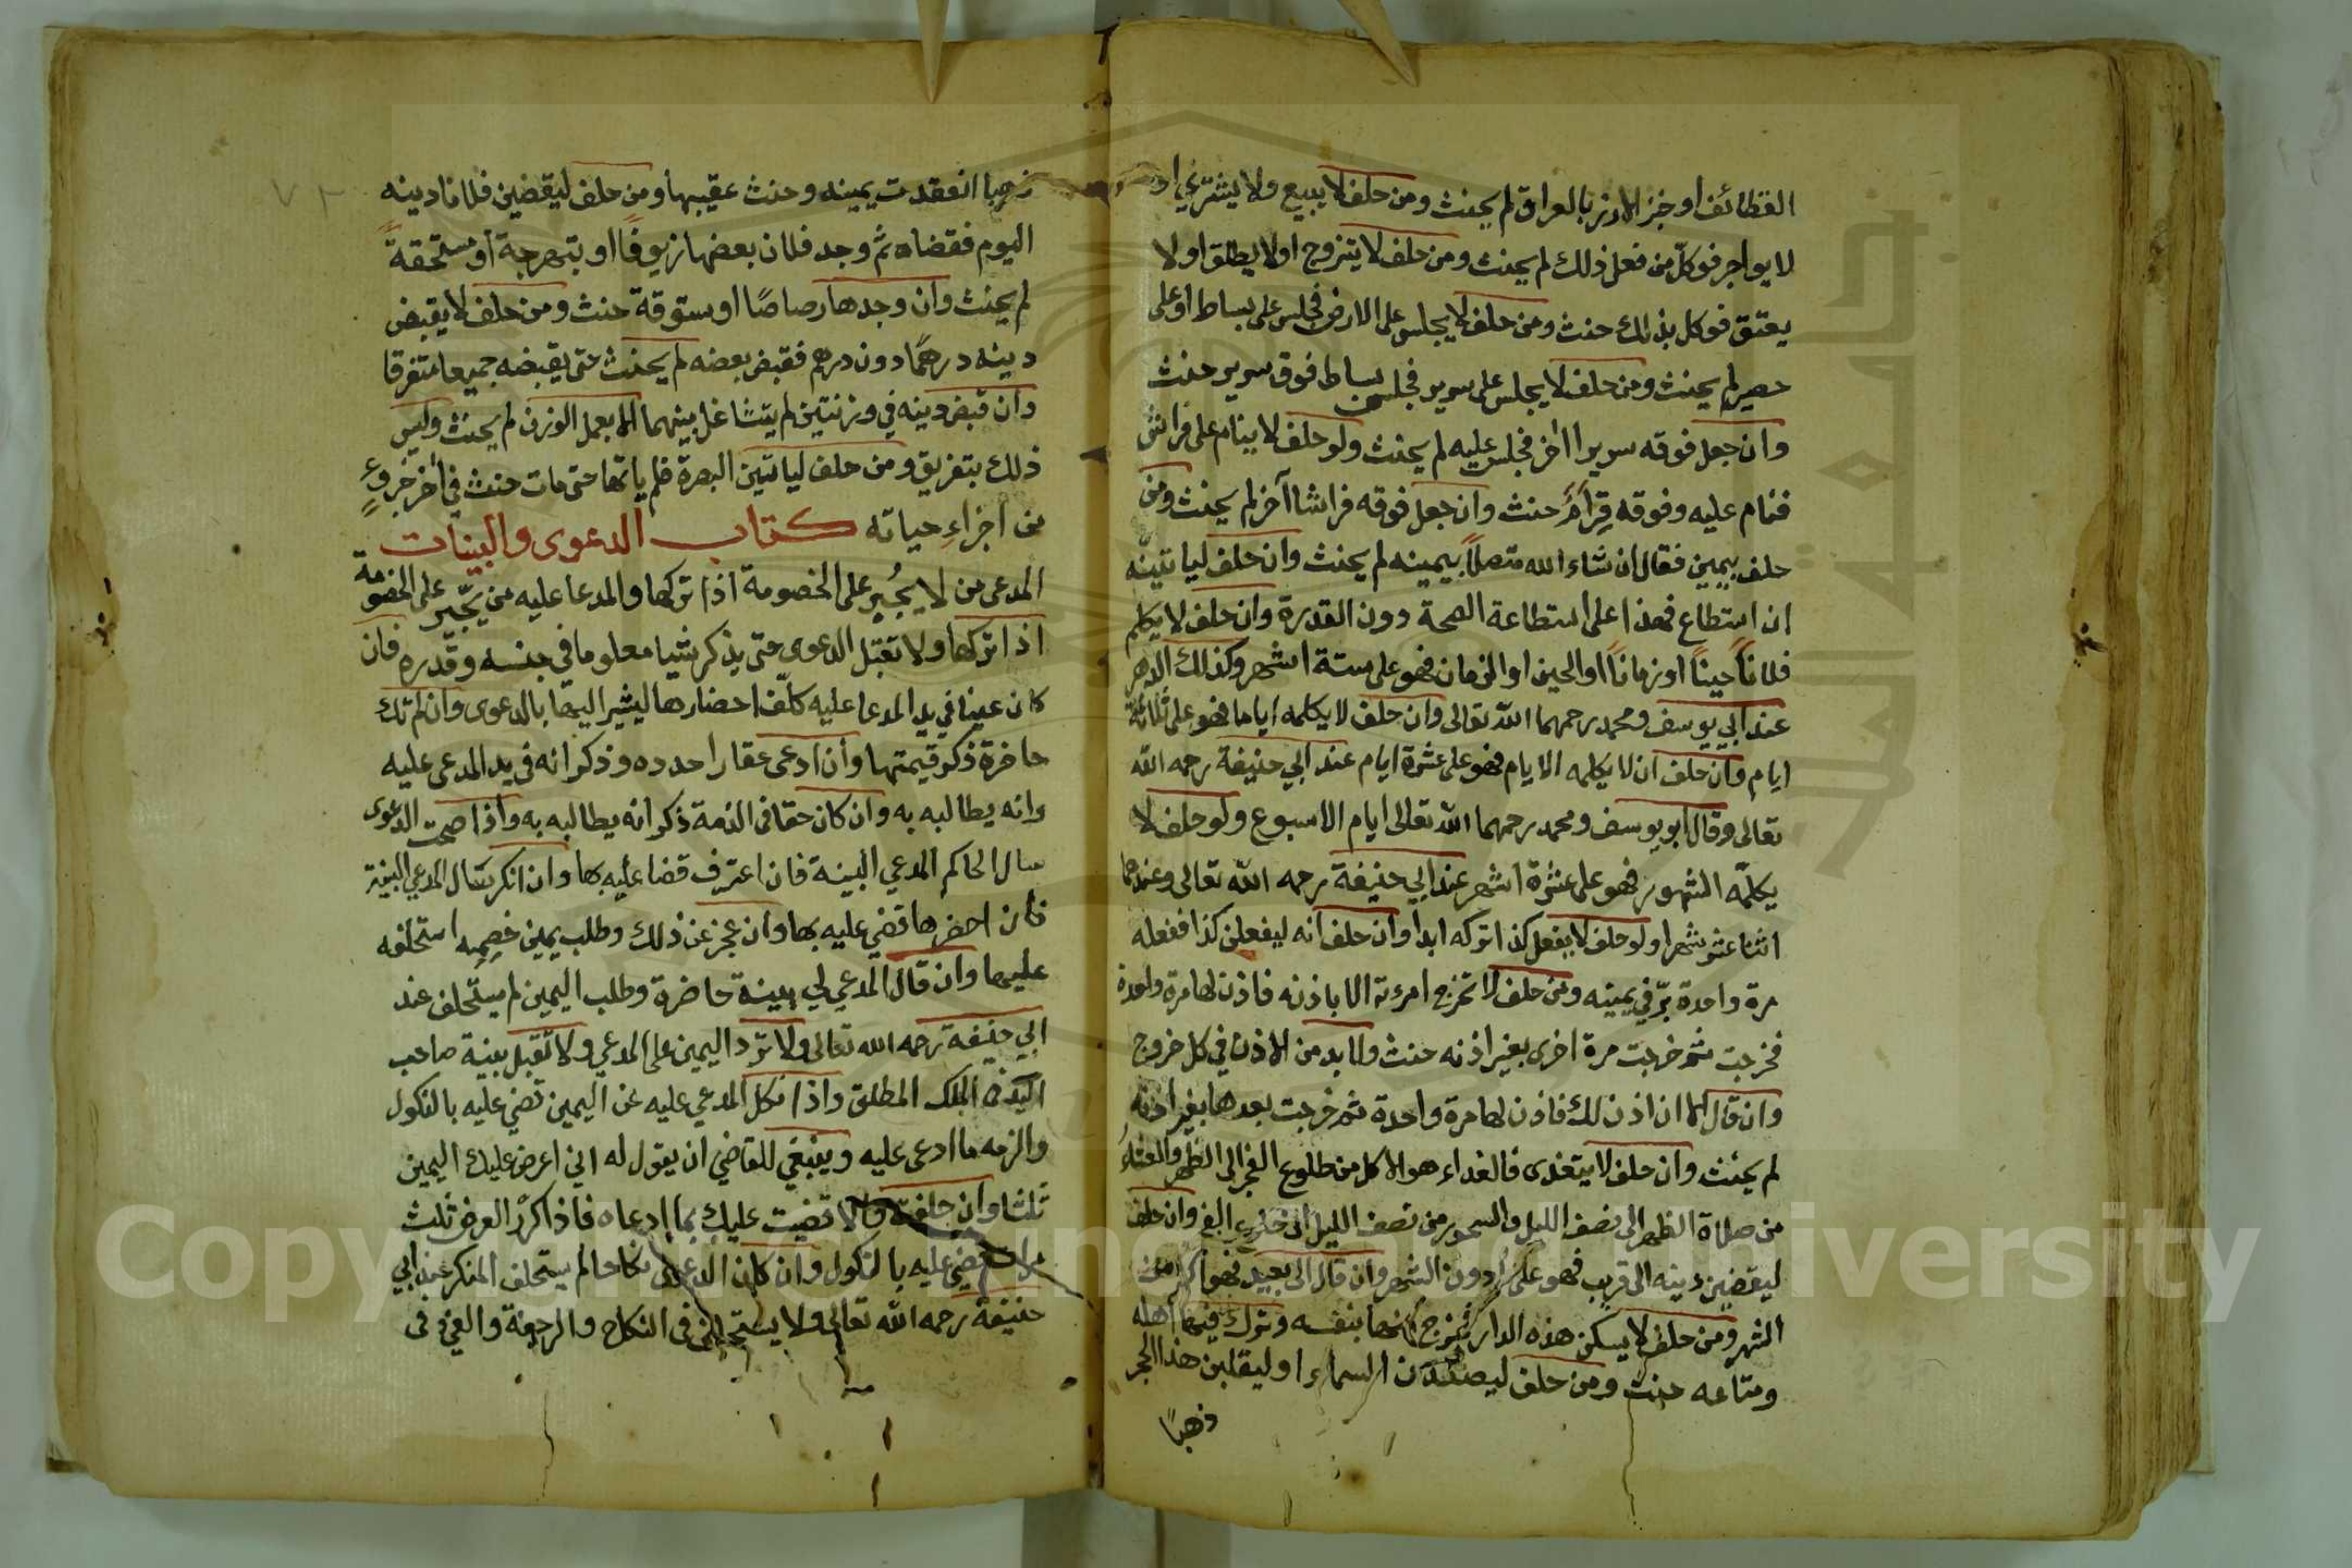 القطائف او خبز الارز بالعراق لم يحنث ومن حلف لا يبيع ولا يشتري او
لا يواجر فوكل من فعل ذلك لم يحنث ومن حلف لا يتزوج او لا يطلق او لا
يعتق فوكل بذلك حنث ومن حلف لا يجلس على الارض فجلس على بساط او على
حصير لم يحنث ومن حلف لا يجلس على سرير فجلس بساط فوق سرير حنث
وان جعل فوقه سريرا اخر فجلس عليه لم يحنث ولو حلف لا ينام على فراش
فنام عليه وفوقه قرام حنث وان جعل فوقه فراشا آخر لم يحنث ومن
حلف بيمين فقال ان شاء الله متصلاً بيمينه لم يحنث وان حلف لياتينه
ان استطاع فهذا على استطاعة الصحة دون القدرة وان حلف لا يكلم
فلاناً حيناً او زماناً او الحين او الزمان فهو على ستة اشهر وكذلك الدهر
عند ابي يوسف ومحمد رحمهما الله تعالى وان حلف لا يكلمه اياما فهو على ثلاثة
ايام وان حلف ان لا يكلمه الايام فهو على عشرة ايام عند ابي حنيفة رحمه الله
تعالى وقال ابو يوسف ومحمد رحمهما الله تعالى ايام الاسبوع ولو حلف لا
يكلمه الشهور فهو على عشرة اشهر عند ابي حنيفة رحمه الله تعالى وعندهما
اثنا عشر شهرا ولو حلف لا يفعل كذا تركه ابدا وان حلف انه ليفعلن كذا ففعله
مرة واحدة برّ في يمينه ومن حلف لا تخرج امرءته الا باذنه فاذن لها مرة واحدة
فخرجت ثم خرجت مرة اخرى بغير اذنه حنث ولا بد من الاذن في كل خروج
وان قال الا ان اذن لك فاذن لها مرة واحدة ثم خرجت بعدها بغير اذنه
لم يحنث وان حلف لا يتغدى فالغداء هو الاكل من طلوع الفجر الى الظهر والعشاء
من صلاة الظهر الى نصف الليل والسحور من نصف الليل الى طلوع الفجر وان حلف
ليقضين دينه الى قريب فهو على دون الشهر وان قال الى بعيد فهو اكثر من
الشهر ومن حلف لا يسكن هذه الدار فخرج منها بنفسه وترك فيها اهله
ومتاعه حنث ومن حلف ليصعدن السماء او ليقلبن هذا الحجر
ذهبًا
ذهبا انعقدت يمينه وحنث عقيبها ومن حلف ليقضين فلانا دينه
اليوم فقضاه ثم وجد فلان بعضها زيوفًا او بنهرجة او مستحقةً
لم يحنث وان وجدها رصاصًا او ستوقة حنث ومن حلف لا يقبض
دينه درهمًا دون درهم فقبض بعضه لم يحنث حتى يقبضه جميعا متفرقا
وان قبض دينه في وزنتين لم يتشاغل بينهما الا بعمل الوزن لم يحنث وليس
ذلك بتفريق ومن حلف لياتين البصرة فلم ياتها حتى مات حنث في آخر جزء
من اجزاء حياته كتاب الدعوى والبينات
المدعى من لا يُجبر على الخصومة اذا تركها والمدعا عليه من يجبر على الخصومة
اذا تركها ولا تقبل الدعوى حتى يذكر شيا معلوما في جنسه وقدره فان
كان عينا في يد المدعا عليه كلّف احضارها ليشير اليها بالدعوى وان لم تك
حاضرة ذكر قيمتها وان ادعى عقارا حدده وذكر انه في يد المدعى عليه
وانه يطالبه به وان كان حقا في الذمة ذكر انه يطالبه به واذا صحت الدعوى
سال الحاكم المدعي البينة فان اعترف قضا عليه بها وان انكر سال المدعي البينة
فان احضرها قضي عليه بها وان عجز عن ذلك وطلب يمين خصمه استحلفه
عليها وان قال المدعي لي بينة حاضرة وطلب اليمين لم يستحلف عند
ابي حنيفة رحمه الله تعالى ولا ترد اليمين على المدعي ولا تقبل بينة صاحب
اليد في الملك المطلق واذا نكل المدعي عليه عن اليمين قضي عليه بالنكول
والزمه ما ادعى عليه وينبغي للقاضي ان يقول له اني اعرض عليك اليمين
ثلثا وان حلفت والا قضيت عليك بما ادعاه فاذا كرّر العرض ثلث
مرات قضي عليه بالنكول وان كان الدعوى نكاحا لم يستحلف المنكر عند ابي
حنيفة رحمه الله تعالى ولا يستحلف في النكاح والرجعة والفئ في
Copyright © King Saud University